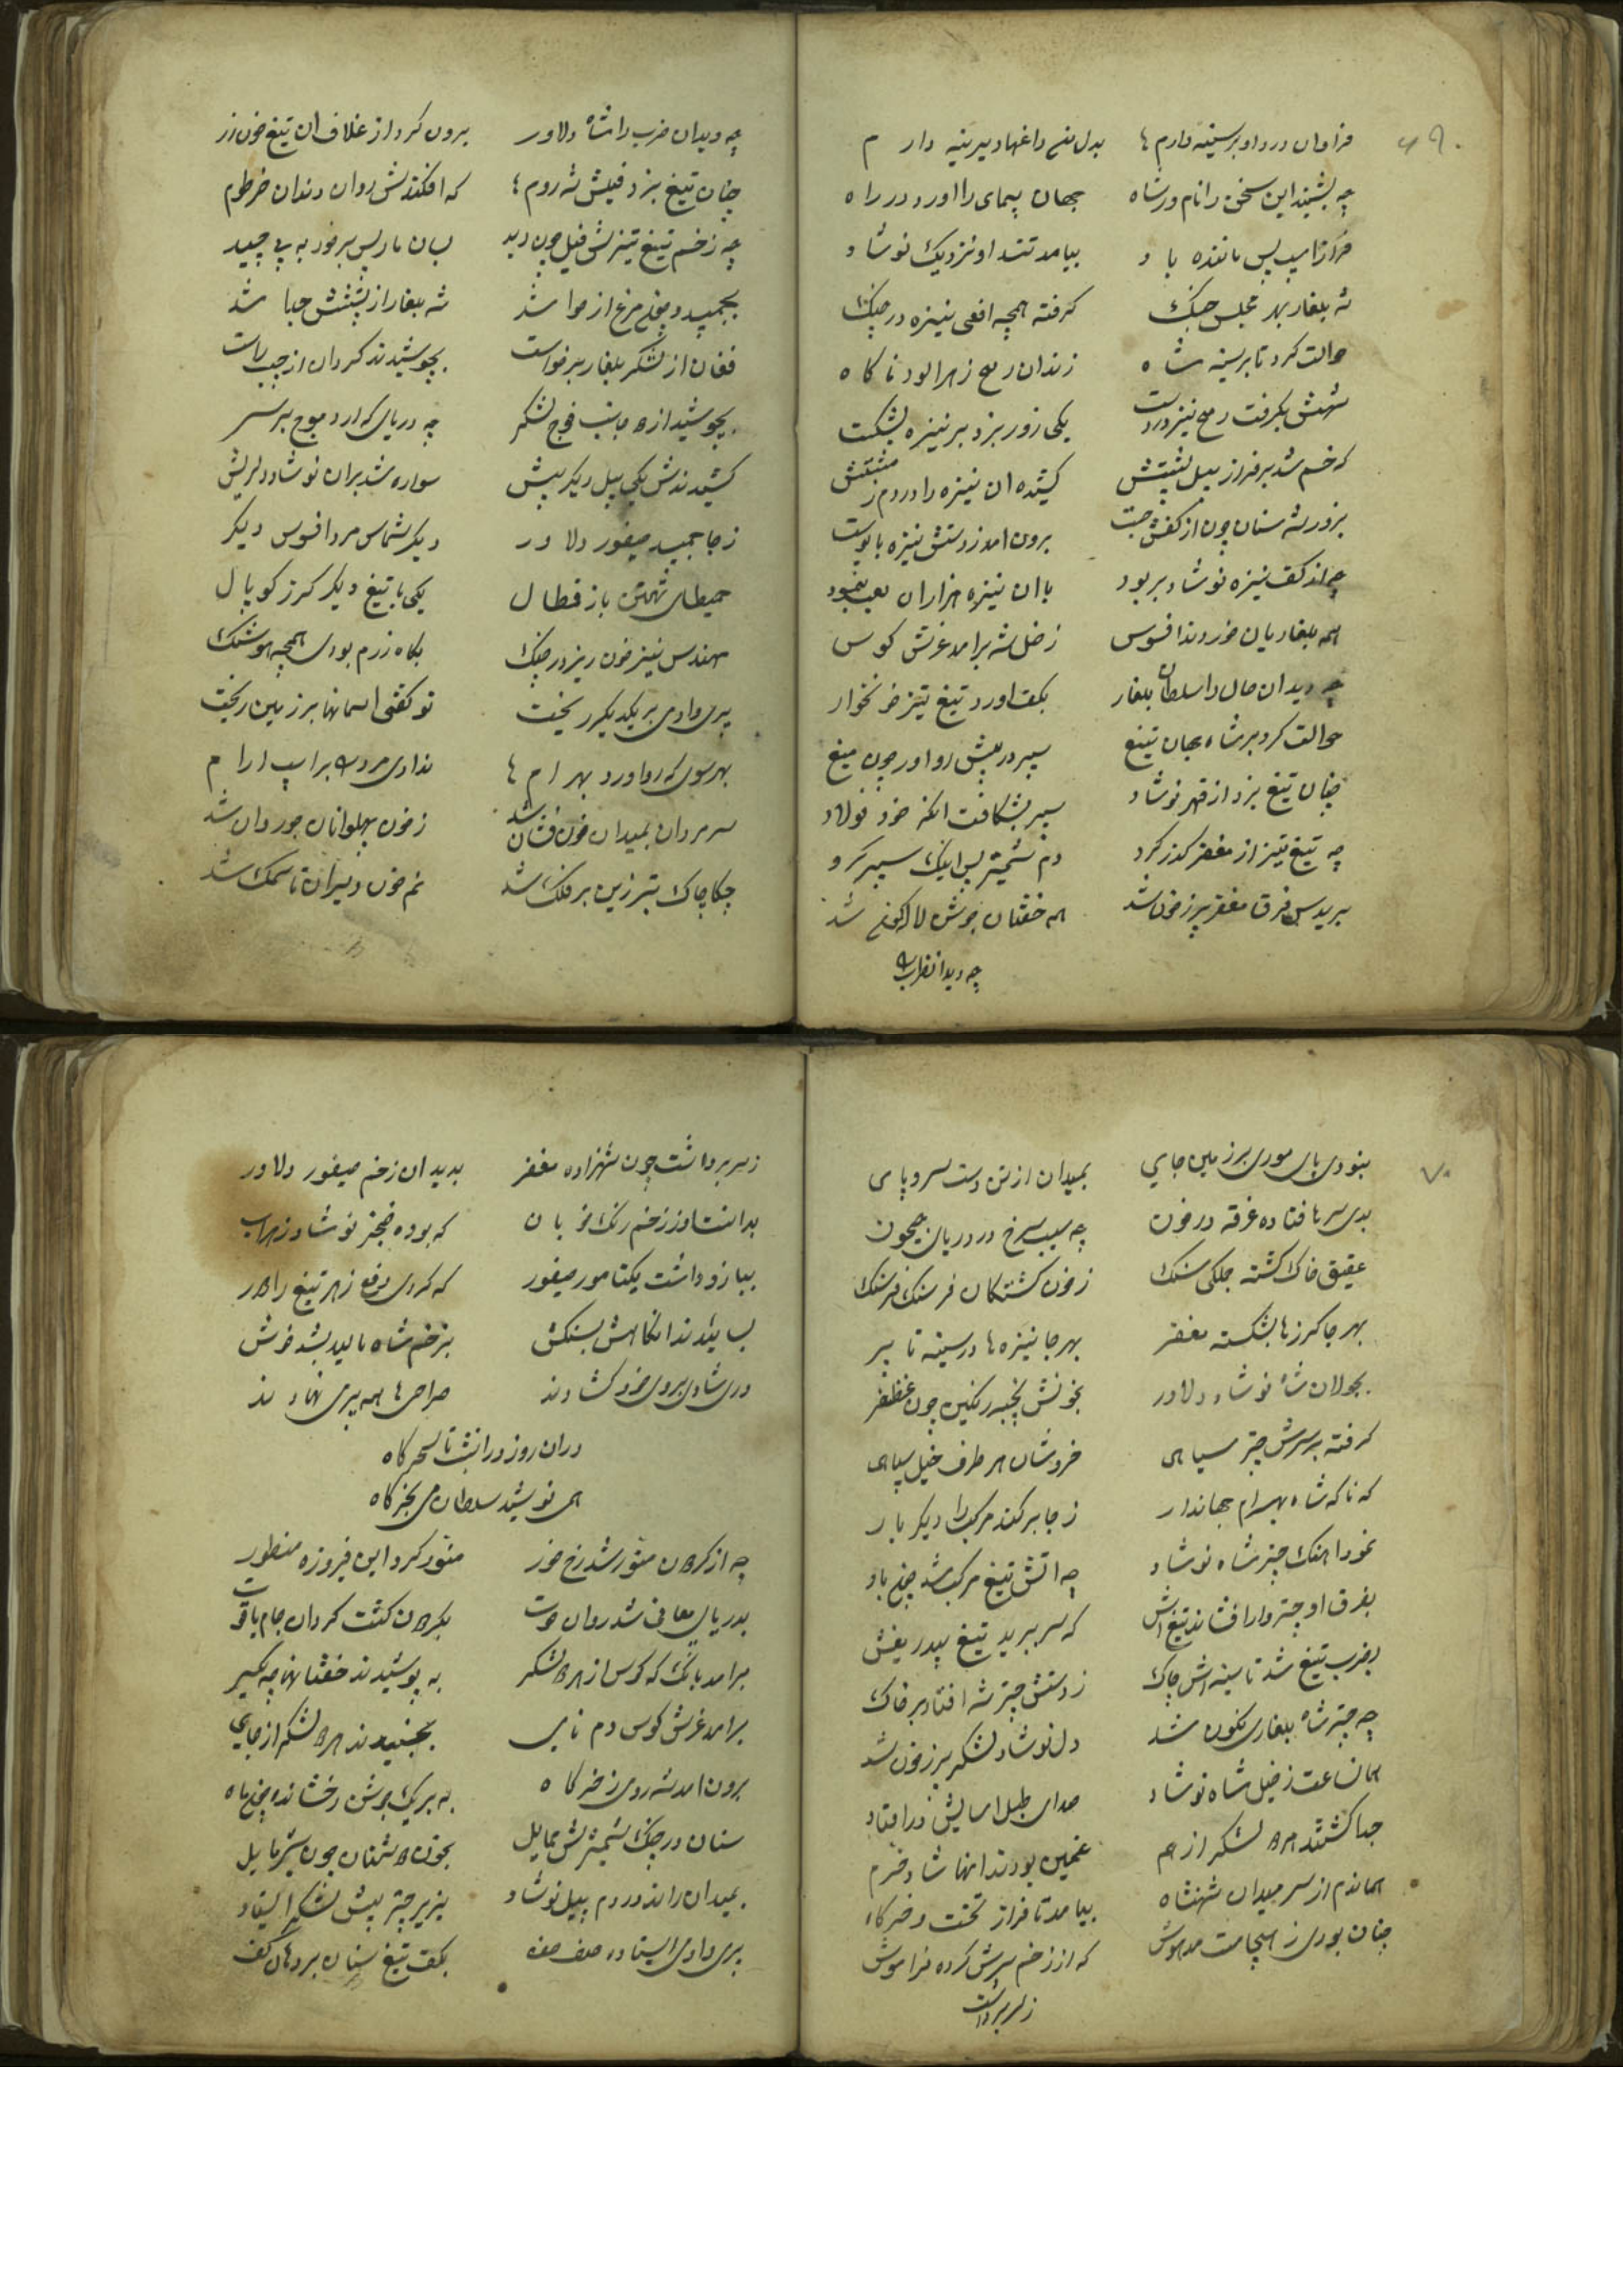 ۶۹
فراوان درد او بر سینه دارم ها بدل من داغها دیرینه دارم
چه بشنید این سخن را نام ور شاه جهان پیمای را اورد در راه
بیامد تند او نزدیک نوشاد
شه بلغار بهر مجلس جنک کرفته همچه افعی نیزه در چنک
حوالت کرد تا بر سینه شاه زند ان رمح زهرالود ناکاه
شهش بکرفت رمح نیزه در دست یکی زور بزد بر نیزه بشکست
که خم شد بر فراز پیل پشتش کشیده ان نیزه را در دم ز مشتش
بزور شه سنان چون از کفش جست برون امد ز دستش نیزه با پوست
چه از کف نیزه نوشاد بربود با ان نیزه هزاران لعب بنمود
همه بلغاریان خوردند افسوس ز خیل شه برامد غرش کوس
چه دید ان حال را سلطان بلغار بکف اورد تیغ تیز خونخوار
حوالت کرد بر شاه جهان تیغ سپر در پیش رو اورد چون میغ
چنان تیغ بزد از قهر نوشاد سپر بشکافت انکه خود فولاد
چه تیغ تیز از مغفر کذر کرد دم شمشیر پس اینک سپر کرد
برید س فرق مغفر پر ز خون شد همه خفتان جوشن لاله کون شد
چه دید انضرب
چه دید ان ضرب را شاه دلاور برون کرد از غلاف ان تیغ خون زر
چنان تیغ بزد فیلش شه روم که افکندش روان دندان خرطوم
چه زخم تیغ تیزش فیل چون دید بسان مار پس بر خود به پیچید
بجمید و چون مرغ از هوا شد شه بلغار از پشتش جدا شد
فغان از لشکر بلغار برخواست بجوشیدند کردان از چپ راست
بجوشید از دو جانب فوج لشکر چه دریای که ارد موج بر سر
کشیدندش یکی پیل دیکر پیش سواره شد بران نوشاد دلریش
ز جا جمبید صیفور دلاور دیکر شماس مرد افسوس دیکر
حیطال تهمتن باز قطال یکی با تیغ دیکر کرز کوپال
مهندس نیز خون ریز در جنک بکاه رزم بودی همچه هوشنک
پری وادمی بر یکدیکر ریخت تو کفتی اسمانها بر زمین ریخت
بهر سوی که رو اورد بهرام ها ندادی مرد بر اسپ ارام
سر مردان بمیدان خون فشان شد ز خون پهلوانان جو روان شد
چکاچاک تبرزین بر فلک شد نم خون دلیران تا سمک شد
۷۰
نبودی پای موری بر زمین جای بمیدان از تن دست سر و پای
بدی سرها فتاده غرقه در خون چه سیب سرخ در دریای جیحون
عقیق خاک کشته جلکی سنک ز خون کشتکان فرسنک فرسنک
بهر جا کرزها بشکسته مغفر بهر جا نیزه ها در سینه تا پر
بجولان شاه نوشاد دلاور بخونش پنجه رنکین چون غضنفر
کرفته بر سرش چتر سیاهی خروشان هر طرف خیل سپاهی
که ناکه شاه بهرام جهاندار ز جا بر کند مرکب را دیکر بار
نمود اهنک چتر شاه نوشاد چه اتش تیغ مرکب شد چون باد
بفرق او چتر وارا فشاند تیغ اش که سر ببرید تیغ بیدریغش
بضرب تیغ شد تا سینه اش چاک ز دستش چتر شه افتاد بر خاک
چه چتر شاه بلغاری نکون شد دل نوشاد لشکر پر ز خون شد
همان ساعت ز خیل شاه نوشاد صدای طبل اسایش در افتاد
جدا کشتند هر دو لشکر از هم غمین بودند انها شاد خرم
هماندم از سر میدان شهنشاه بیامد تا فراز تخت و خرکاه
چنان بودی ز مدهوش که از زخم سرش کرده فراموش
ز سر برداشت
ز سر برداشت چون شهزاده مغفر بدید ان زخم صیفور دلاور
بدانست او ز زخم رنک خونان که بوده خنجر نوشاد زهراب
ببازو داشت یکتا مور صیفور که کردی دفع زهر تیغ را دور
بسائیدند انکاهش بسنکش بزخم شاه مالید بشد خوش
دری شادی بروی خود کشادند صراحی ها همه پری نهادند
دران روز دران شب تا سحرکاه
همی نوشید سلطان می بخرکاه
چه از کردون منور شد رخ خور منور کرد این فیروزه منظور
بدریای معانی شد روان حوت بکردون کشت کردان جام یاقوت
برامد بانک که کوس از هر دو لشکر به پوشیدند خفتانها چه
برامد غرش کوس دم نای بجنبیدند هر دو لشکر از جای
برون امد شه رومی ز خرکاه به بر یک جوشن رخشانده چون ماه
سنان در چنک شمشیرش حمایل بخون دشمنان چون شیر مایل
بمیدان راند در دم پیل نوشاد بزیر چتر پیش لشکر ایستاد
پری وادمی ایستاده صف صف بکف تیغ سنان بر دهان کف